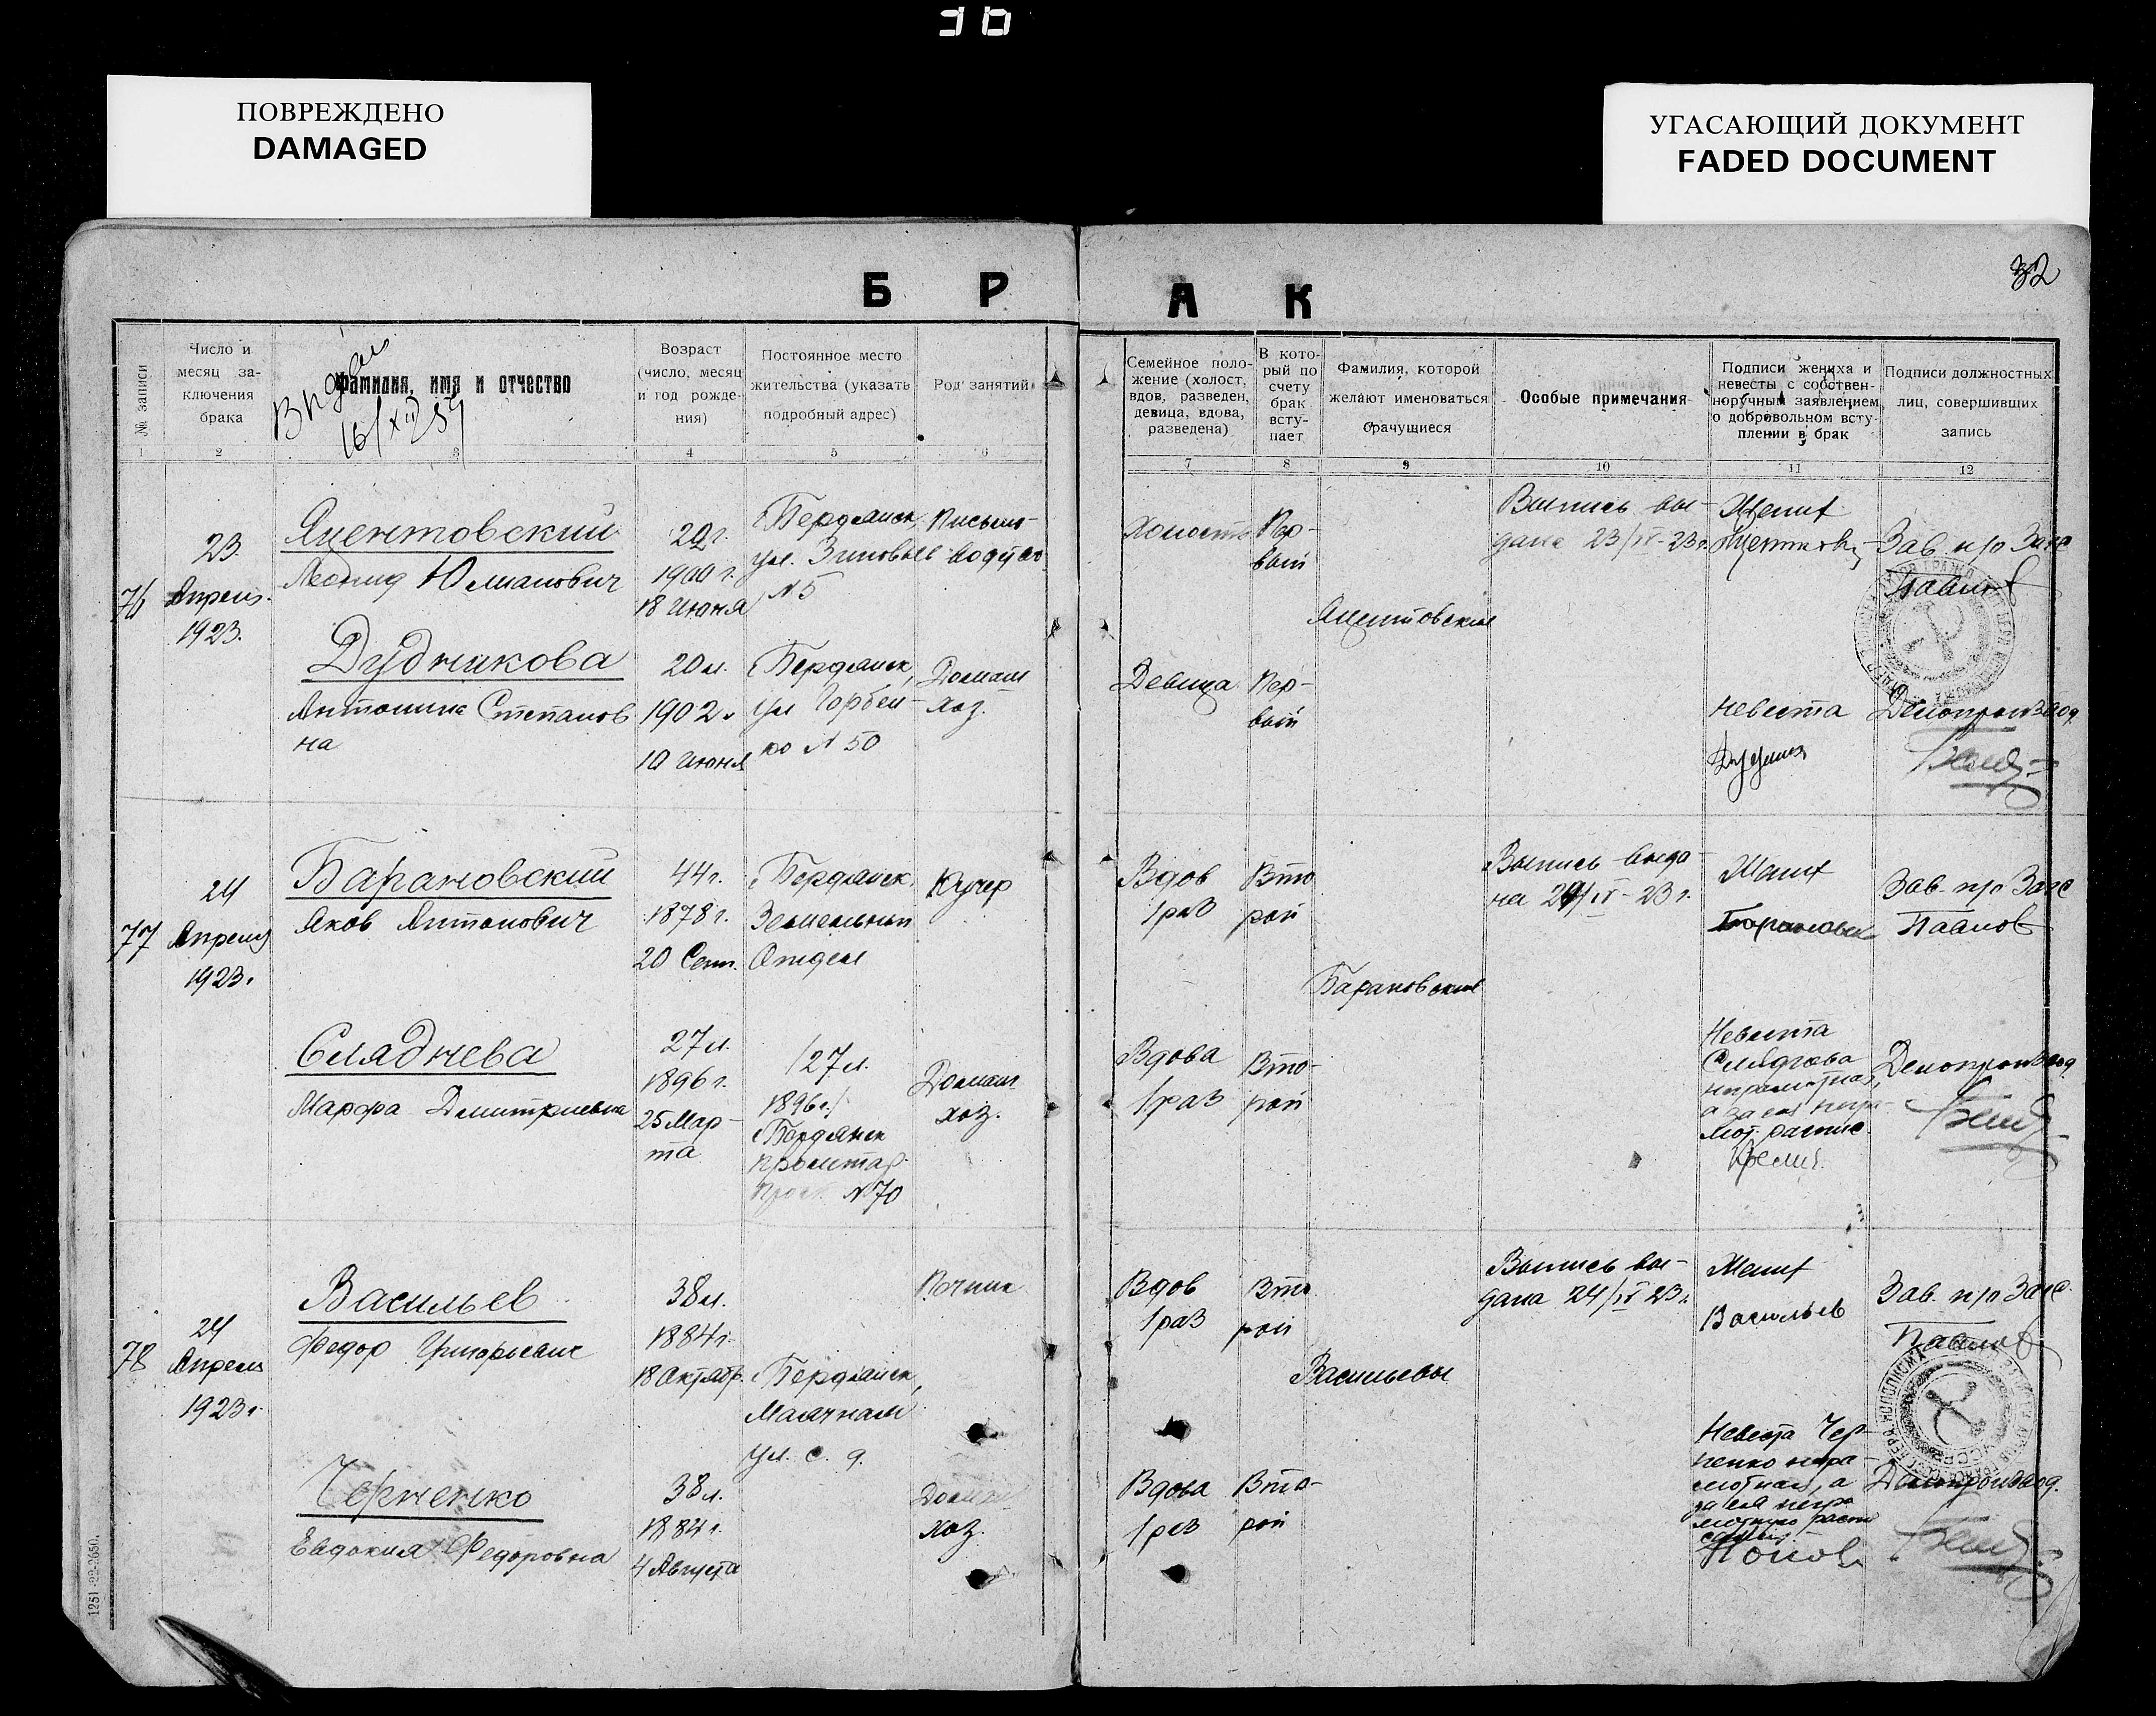 ПОВРЕЖДЕНО
DAMAGED
УГАСАЮЩИЙ ДОКУМЕНТ
FADED DOCUMENT
32
Б Р А К
№ записи
Число и
месяц за-
ключения
брака
Фамилия, имя и отчество
16/XII 59
Возраст
(число, месяц
и год рожде-
ния)
Постоянное место
жительства (указать
подробный адрес)
Род занятий
Семейное поло-
жение (холост,
вдов, разведен,
девица, вдова,
разведена)
В кото-
рый по
счету
брак
всту-
пает
Фамилия, которой
желают именоваться
брачущиеся
Особые примечания
Подписи жениха и
невесты с собствен-
норучным заявлением
о добровольном всту-
плении в брак
Подписи должностных
лиц, совершивших
запись
1 2 3 4 5 6 7 8 9 10 11 12
76
23
Апреля
1923.
Яцентовский
Леонид Юлианович
22 г.
1900 г.
18 Июня
Бердянск,
ул. Зиновьев
N 5
Письмо-
водство
Холост
Пер-
вый
Яцентовские
Выпись вы-
дана 23/IV-23г.
Жених
Зав. п/о Загс
Павлов
Дудникова
Антонина Степанов
на
20 л.
1902 г
10 Июня
Бердянск,
ул Горбен-
ко N 50
Домаш
хоз.
Девица
Пер-
вый
Невеста
Делопроизвод.
77
24
Апреля
1923.
Барановский
Яков Антонович
44 г.
1878 г.
20 Сент.
Бердянск,
Земельный
Отдел
Кучер
Вдов
1 раз
Вто
рой
Барановские
Выпись выда-
на 24/IV-23 г.
Жених
Зав. п/о Загс
Павлов
Сляднева
Марфа Дмитриевна
27 л.
1896 г.
25 Мар-
та
/27 л.
1896 г./
Бердянск
Пролетар.
N 70
Домаш
хоз.
Вдова
1 раз
Вто-
рой
Невеста
Сляднева
Делопроизвод.
78
24
Апреля
1923 г.
Васильев
Федор Григорьевич
38 л.
1884 г.
18 Октябр.
Бердянск,
Маячная
ул. с. д.
Вдов
1 раз
Вто
рой
Васильевы
Выпись вы-
дана 24/IV 23 г.
Жених
Васильев
Зав. п/о Загс
Павлов
Черненко
Евдокия Федоровна
38 л.
1884 г.
4 Августа
Домаш
хоз.
Вдова
1 раз
Вто-
рой
Невеста Чер-
ненко негра-
мотная, а
за нея негра
мотную распи
Попов
Делопроизвод.
1251-22-2650.